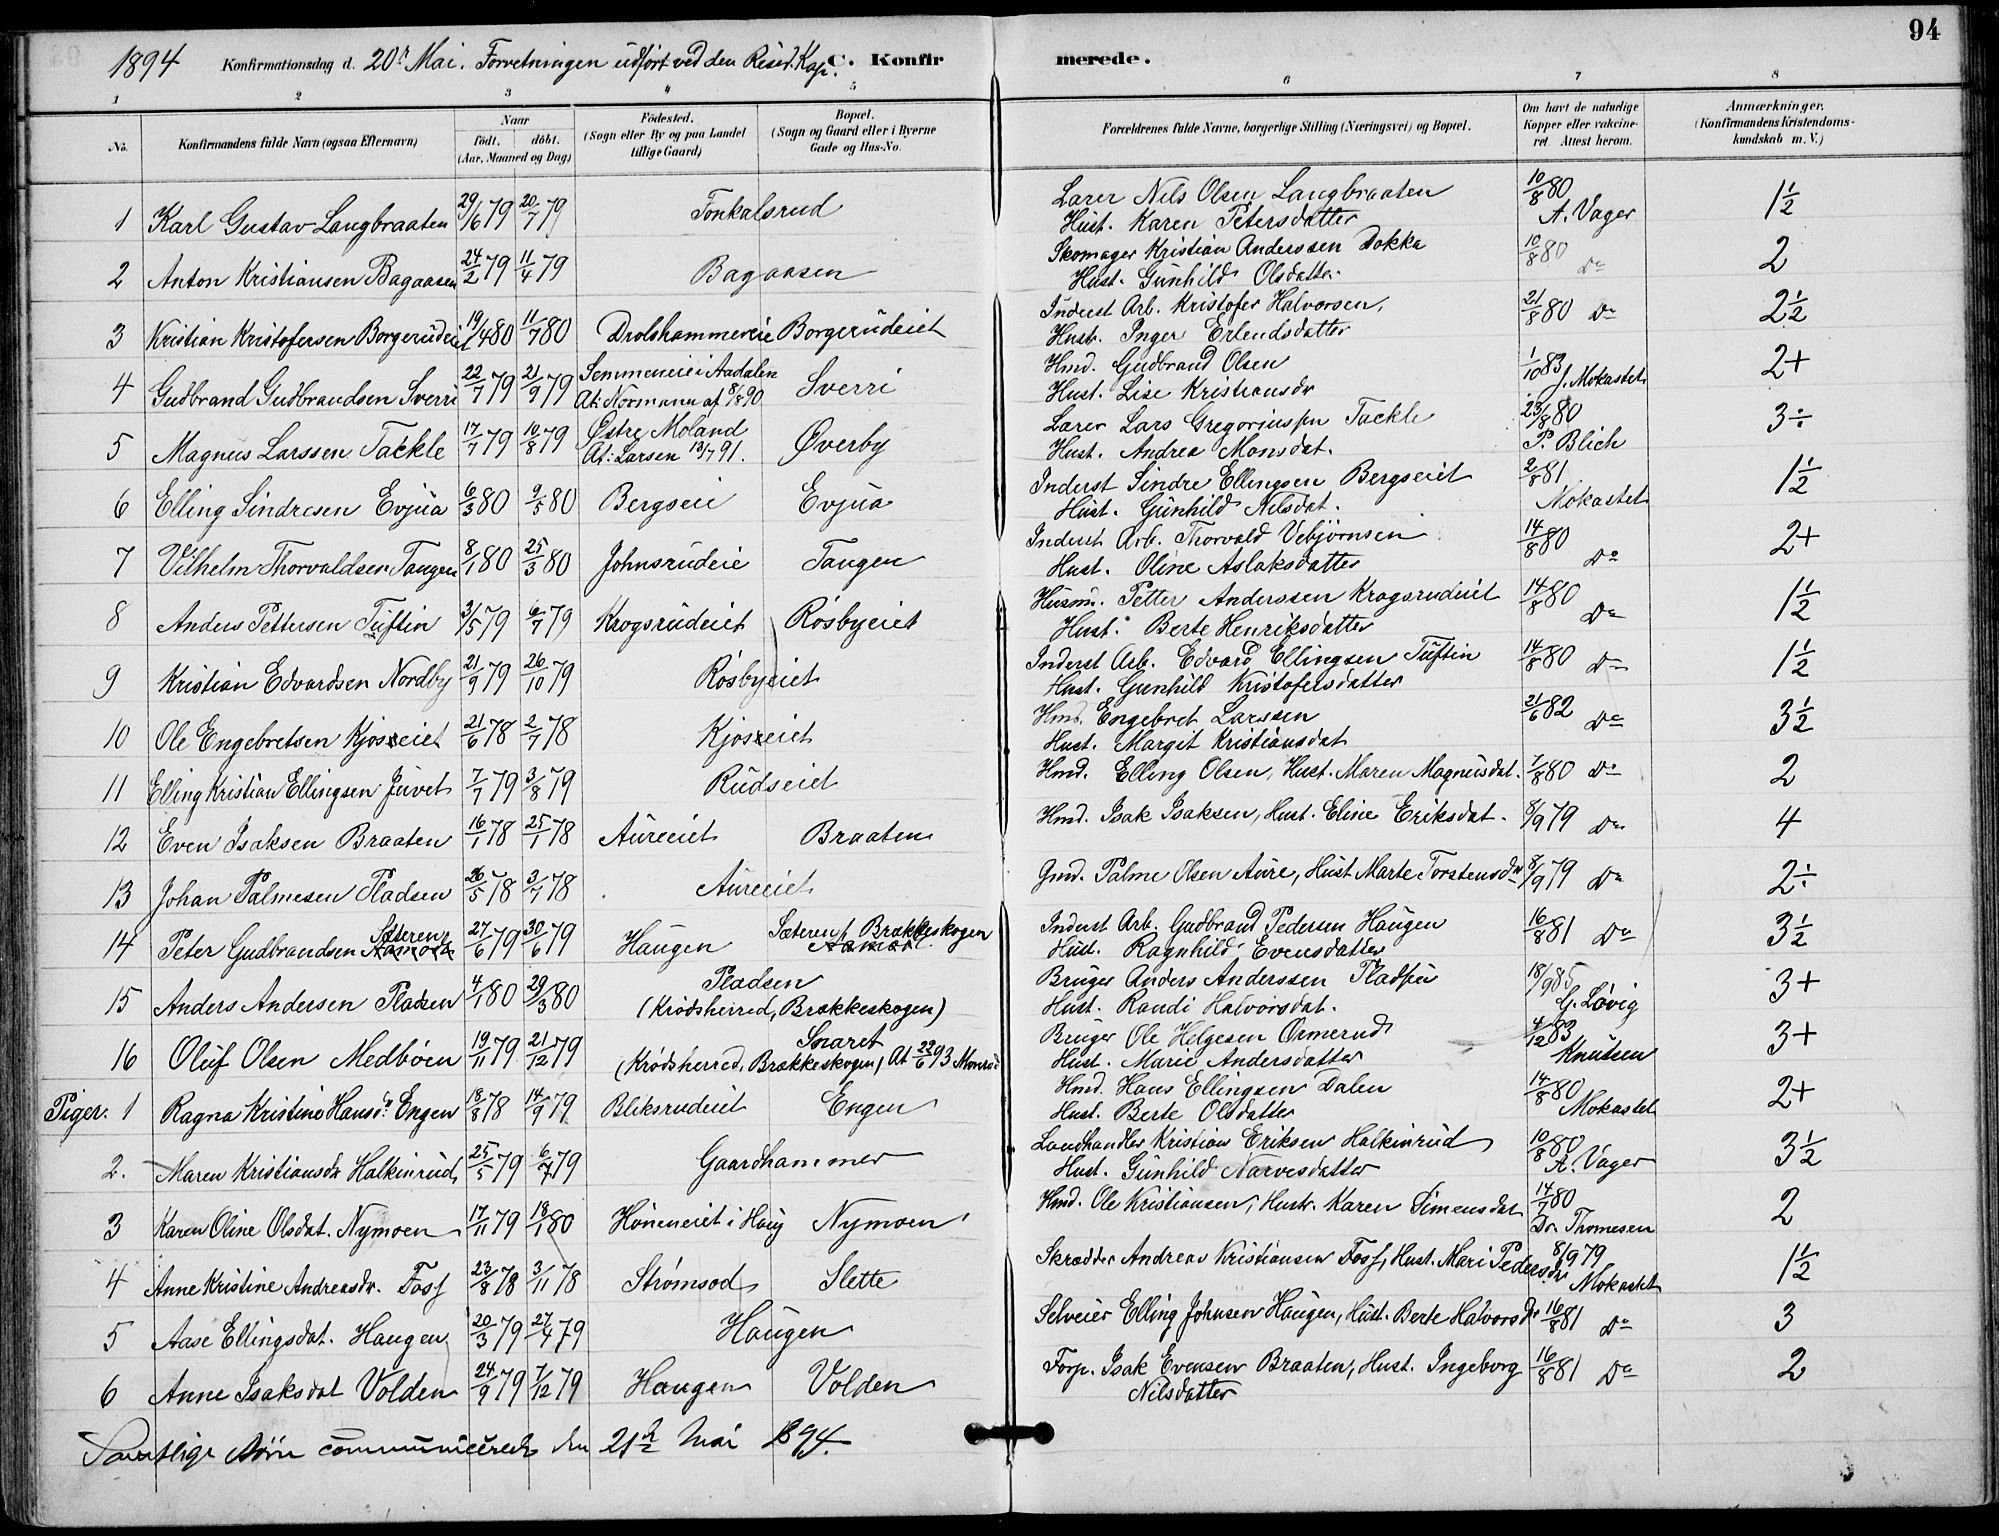 94
1894 Konfirmationsdag d. 20de Mai. Forretningen udført ved den Resid. Kap. C. Konfirmerede.
1 2 3 4 5 6 7 8
No. Konfirmandens fulde Navn (ogsaa Efternavn) Naar født. døbt. (Aar, Maaned og Dag) Födested. (Sogn eller By og paa Landet tillige Gaard) Bopæl. (Sogn og Gaard eller i Byerne Gade og Hus-No. Forældrenes fulde Navne, borgerlige Stilling (Næringsvei) og Bopæl. Om havt de naturlige Kopper eller vakcineret. Attest herom. Anmærkninger. (Konfirmandens Kristendomskundskab m. V.)
1 Karl Gustav Langbraaten 29/6 79 20/7 79 Tonkalsrud Lærer Nils Olsen Langbraaten 10/8 80 1½
Hust. Karen Petersdatter A. Vager
2 Anton Kristiansen Bagaasen 24/2 79 11/4 79 Bagaasen Skomager Kristian Anderssen Dokka 10/8 80 Do 2
Hust. Gunhild Olsdatter
3 Kristian Kristofersen Borgerudeiet 19/4 80 11/7 80 Drolshammereie Borgerudeiet Inderst Arb. Kristofer Halvorsen, 21/8 80 Do 2½
Hust. Inger Erlendsdatter
4 Gudbrand Gudbrandsen Sverri 22/7 79 21/9 79 Semmeneie i Aadalen Sverri Hmd. Gudbrand Olsen 1/10 83 2+
At: Normann af 8/8 90 Hust. Lise Kristiansdr J. Mokastet
5 Magnus Larssen Tackle 17/7 79 10/8 79 Østre Moland Øverby Lærer Lars Gregoriussen Tackle 23/8 80 3÷
At: Larsen 13/7 91. Hust. Andrea Monsdat. P. Blich
6 Elling Sindresen Evjua 6/3 80 9/5 80 Bergseie Evjua Inderst Sindre Ellingsen Bergseiet 2/8 81 1½
Hust. Gunhild Nilsdat. Mokastet
7 Vilhelm Thorvaldsen Tangen 8/1 80 25/3 80 Johnsrudeie Tangen Inderst Arb. Thorvald Vebjørnsen 14/8 80 2+
Hust. Oline Aslaksdatter Do
8 Anders Pettersen Tuftin 3/5 79 6/7 79 Krogsrudeiet Røsbyeiet Husmd. Petter Anderssen Krogsrudeiet 14/8 80 1½
Hust. Berte Henriksdatter Do
9 Kristian Edvardsen Nordby 21/9 79 26/10 79 Røsbyeiet Inderst Arb. Edvard Ellingsen Tuftin 14/8 80 Do 1½
Hust. Gunhild Kristofersdatter
10 Ole Engebretsen Kjoseiet 21/6 78 2/7 78 Kjoseiet Hmd. Engebret Larssen 21/6 82 Do 3½
Hust. Margit Kristiansdat
11 Elling Kristian Ellingsen Juvet 7/7 79 3/8 79 Rudseiet Hmd. Elling Olsen, Hust. Maren Magnusdat. 7/8 80 Do 2
12 Even Isaksen Braaten 16/1 78 25/1 78 Aureeiet Braaten Hmd. Isak Isaksen, Hust. Eline Eriksdat. 8/9 79 Do 4
13 Johan Palmesen Pladsen 26/5 78 3/7 78 Aureeiet Gmd. Palme Olsen Aure, Hust Marte Torstensdr 8/9 79 Do 2÷
14 Peter Gudbrandsen Sæteren 27/6 79 30/6 79 Haugen Sæteren, Brækkeskogen Inderst Arb. Gudbrand Pedersen Haugen 16/8 81 Do 3½
Hust. Ragnhild Evensdatter
15 Anders Andersen Pladsen 4/1 80 29/3 80 Pladsen Bruger Anders Anderssen Pladsen 18/9 85 3+
(Krødsherred, Brækkeskogen) Hust. Randi Halvorsdat. G. Løvig
16 Oluf Olsen Medbøen 19/11 79 21/12 79 Snaret Bruger Ole Helgesen Ørmerud 4/12 83 3+
(Krødsherred, Brækkeskogen) At 22/6 93 Monrad Hust. Marie Andersdatter Knutsen
Piger. 1 Ragna Kristine Hansdr. Engen 18/8 78 14/9 79 Bliksrudeiet Engen Hmd. Hans Ellingsen Dalen 14/8 80 2+
Hust. Berte Olsdatter Mokastet
2. Maren Kristiansdr Halkinrud 25/5 79 6/7 79 Gaardhammer Landhandler Kristian Eriksen Halkinrud 10/8 80 3½
Hust. Gunhild Narvesdatter A. Vager
3 Karen Oline Olsdat. Nymoen 17/11 79 18/1 80 Hønneneiet i Haug Nymoen Hmd. Ole Kristiansen, Hustr. Karen Simensdat 14/7 80 2
Dr. Thomesen
4 Anne Kristine Andreasdr. Foss 23/8 78 3/11 78 Strømsod Slette Skrædder Andreas Kristiansen Foss, Hust. Mari Pedersdr 8/9 79 1½
Mokastet
5 Aase Ellingsdat. Haugen 20/3 79 27/4 79 Haugen Selveier Elling Johnsen Haugen, Hust. Berte Halvorsdr 16/8 81 Do 3
6 Anne Isaksdat Volden 24/9 79 7/12 79 Haugen Volden Forp. Isak Evensen Braaten, Hust. Ingeborg 16/8 81 Do 2
Nilsdatter
Samtlige Børn communicerede den 21de Mai 1894.